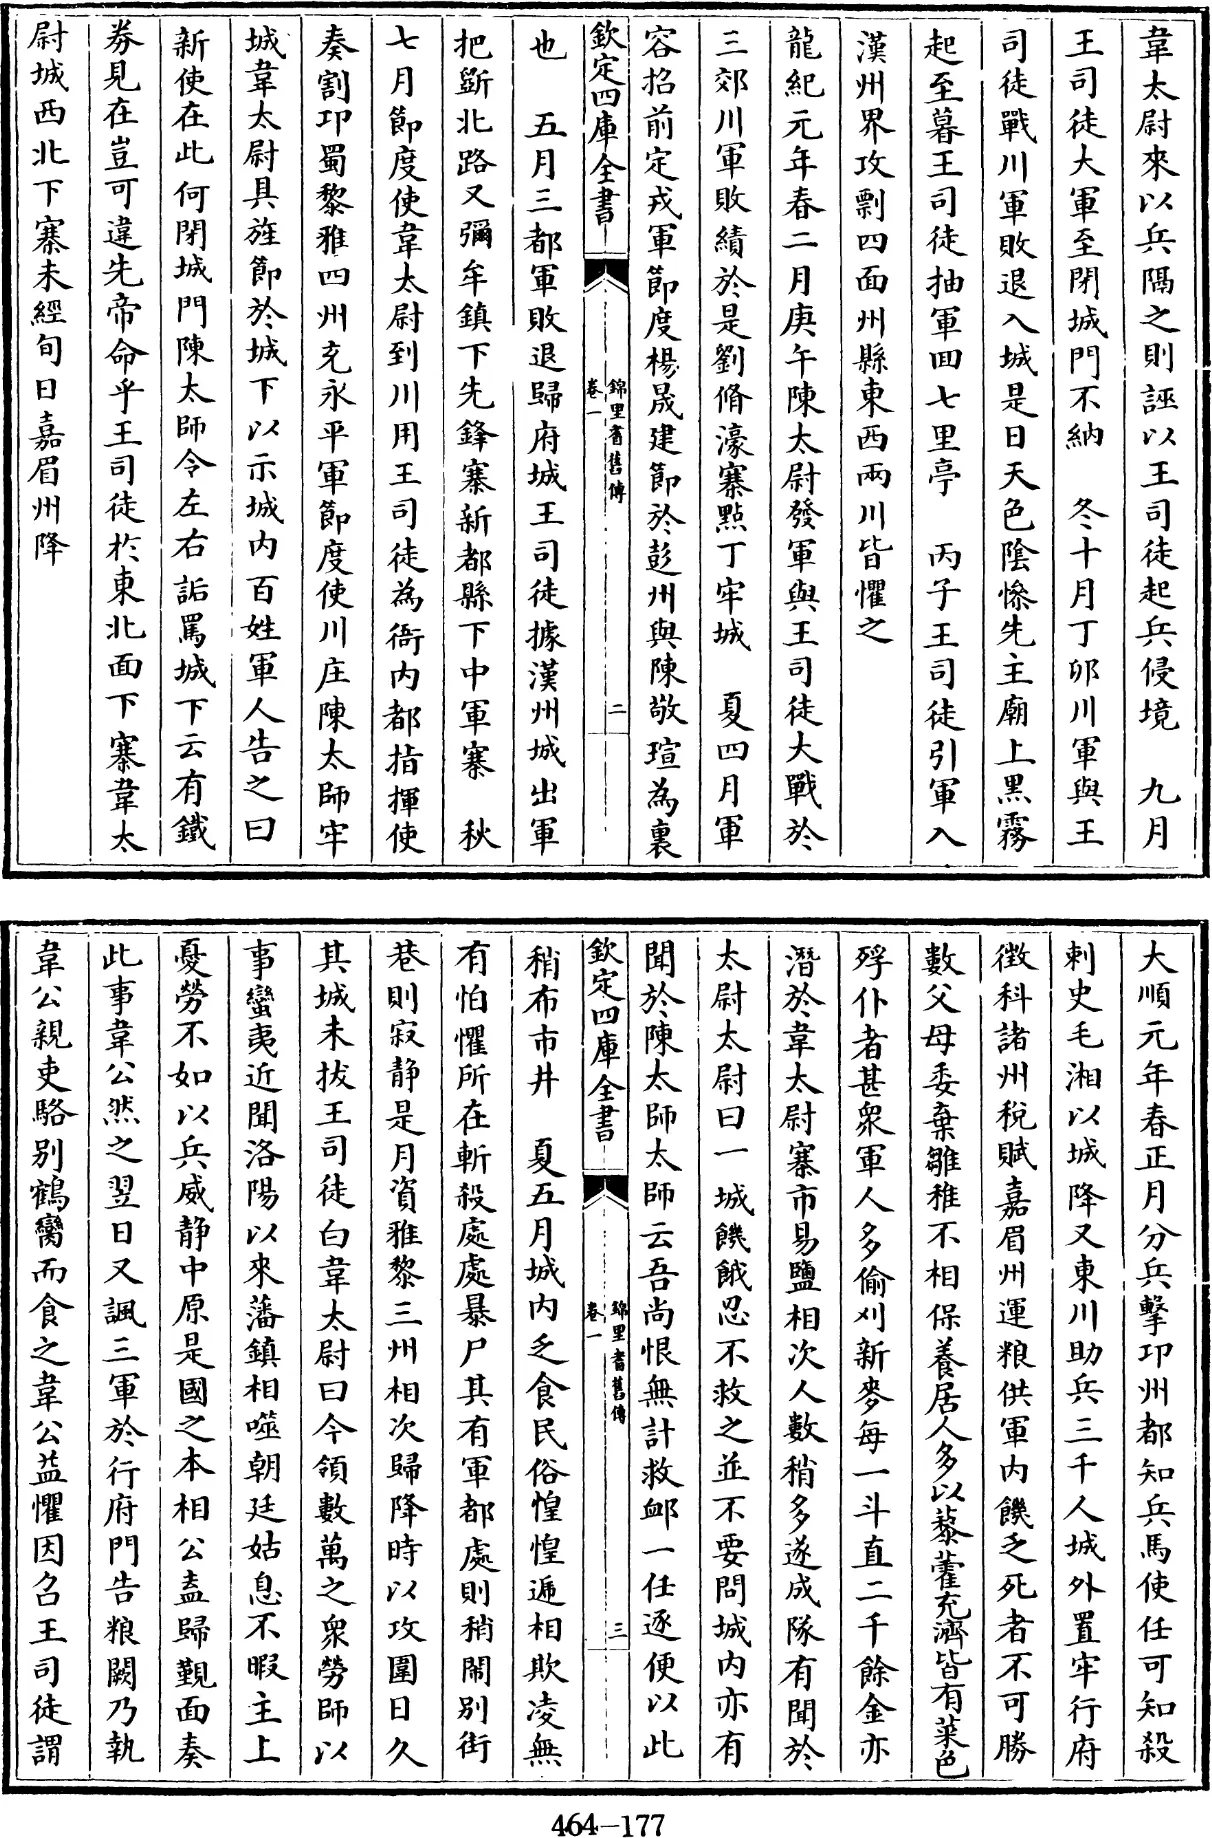 韋太尉來以兵隅之則誣以王司徒起兵侵境　九月
王司徒大軍至閉城門不納　冬十月丁卯川軍與王
司徒戰川軍敗退入城是日天色陰慘先主廟上黑霧
起至暮王司徒抽軍回七里亭　丙子王司徒引軍入
漢州界攻剽四面州縣東西兩川皆懼之
龍紀元年春二月庚午陳太尉發軍與王司徒大戰於
三郊川軍敗績於是劉脩濠寨點丁牢城　夏四月軍
容招前定戎軍節度楊晟建節於彭州與陳敬瑄為裏
欽定四庫全書
錦里耆舊傳
卷一
二
也　五月三都軍敗退歸府城王司徒據漢州城出軍
把斷北路又彌牟鎮下先鋒寨新都縣下中軍寨　秋
七月節度使韋太尉到川用王司徒為衙内都指揮使
奏割卭蜀黎雅四州充永平軍節度使川庄陳太師牢
城韋太尉具旌節於城下以示城内百姓軍人告之曰
新使在此何閉城門陳太師令左右詬罵城下云有鐵
券見在豈可違先帝命乎王司徒於東北面下寨韋太
尉城西北下寨未經旬日嘉眉州降
大順元年春正月分兵擊卭州都知兵馬使任可知殺
刺史毛湘以城降又東川助兵三千人城外置牢行府
徴科諸州稅賦嘉眉州運粮供軍内饑乏死者不可勝
數父母委棄雛稚不相保養居人多以藜藿充濟皆有菜色
殍仆者甚衆軍人多偷刈新麥每一斗直二千餘金亦
潛於韋太尉寨市易鹽相次人數稍多遂成隊有聞於
太尉太尉曰一城饑餓忍不救之並不要問城内亦有
聞於陳太師太師云吾尚恨無計救卹一任逐便以此
欽定四庫全書
錦里耆舊傳
卷一
三
稍布市井　夏五月城内乏食民俗惶惶遞相欺凌無
有怕懼所在斬殺處處暴尸其有軍都處則稍鬧別街
巷則寂静是月資雅黎三州相次歸降時以攻圍日久
其城未拔王司徒白韋太尉曰今領數萬之衆勞師以
事蠻夷近聞洛陽以來藩鎮相噬朝廷姑息不暇主上
憂勞不如以兵威静中原是國之本相公盍歸覲面奏
此事韋公然之翌日又諷三軍於行府門告粮闕乃執
韋公親吏駱別鶴臠而食之韋公益懼因召王司徒謂
464—177